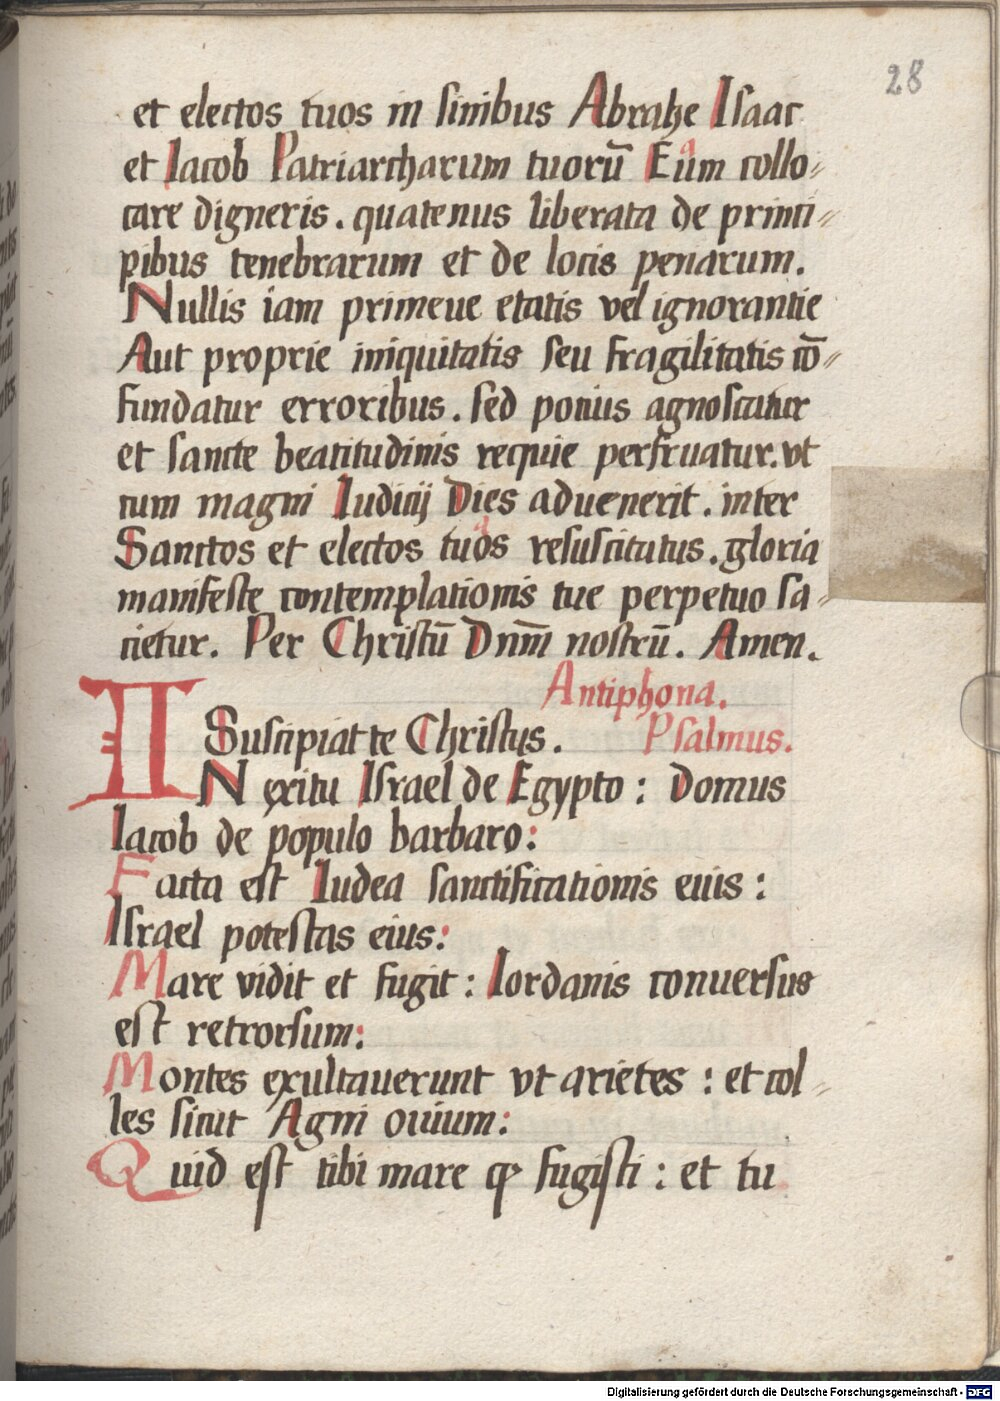 28
et electos tuos in sinibus Abrahe Isaac
et Iacob Patriarcharum tuorū Eum collo-
care digneris. quatenus liberata de princi-
pibus tenebrarum et de locis penarum.
Nullis iam primeue etatis vel ignorantie
Aut proprie iniquitatis seu fragilitatis cō-
fundatur erroribus. sed potius agnoscatur
et sancte beatitudinis requie perfruatur. vt
cum magni Iudicij Dies aduenerit. inter
Sanctos et electos tuos resuscitatus. gloria
manifeste contemplationis tue perpetuo sa-
cietur. Per Christū Dnm̄ nostrū. Amen.
Antiphona.
Suscipiat te Christus. Psalmus.
IN exitu Israel de Egypto: Domus
Iacob de populo barbaro:
Facta est Iudea sanctificationis eius:
Israel potestas eius:
Mare vidit et fugit: Iordanis conuersus
est retrorsum:
Montes exultauerunt vt arietes: et col-
les sicut Agni ouium:
Quid est tibi mare ꝙ fugisti: et tu
Digitalisierung gefördert durch die Deutsche Forschungsgemeinschaft - DFG